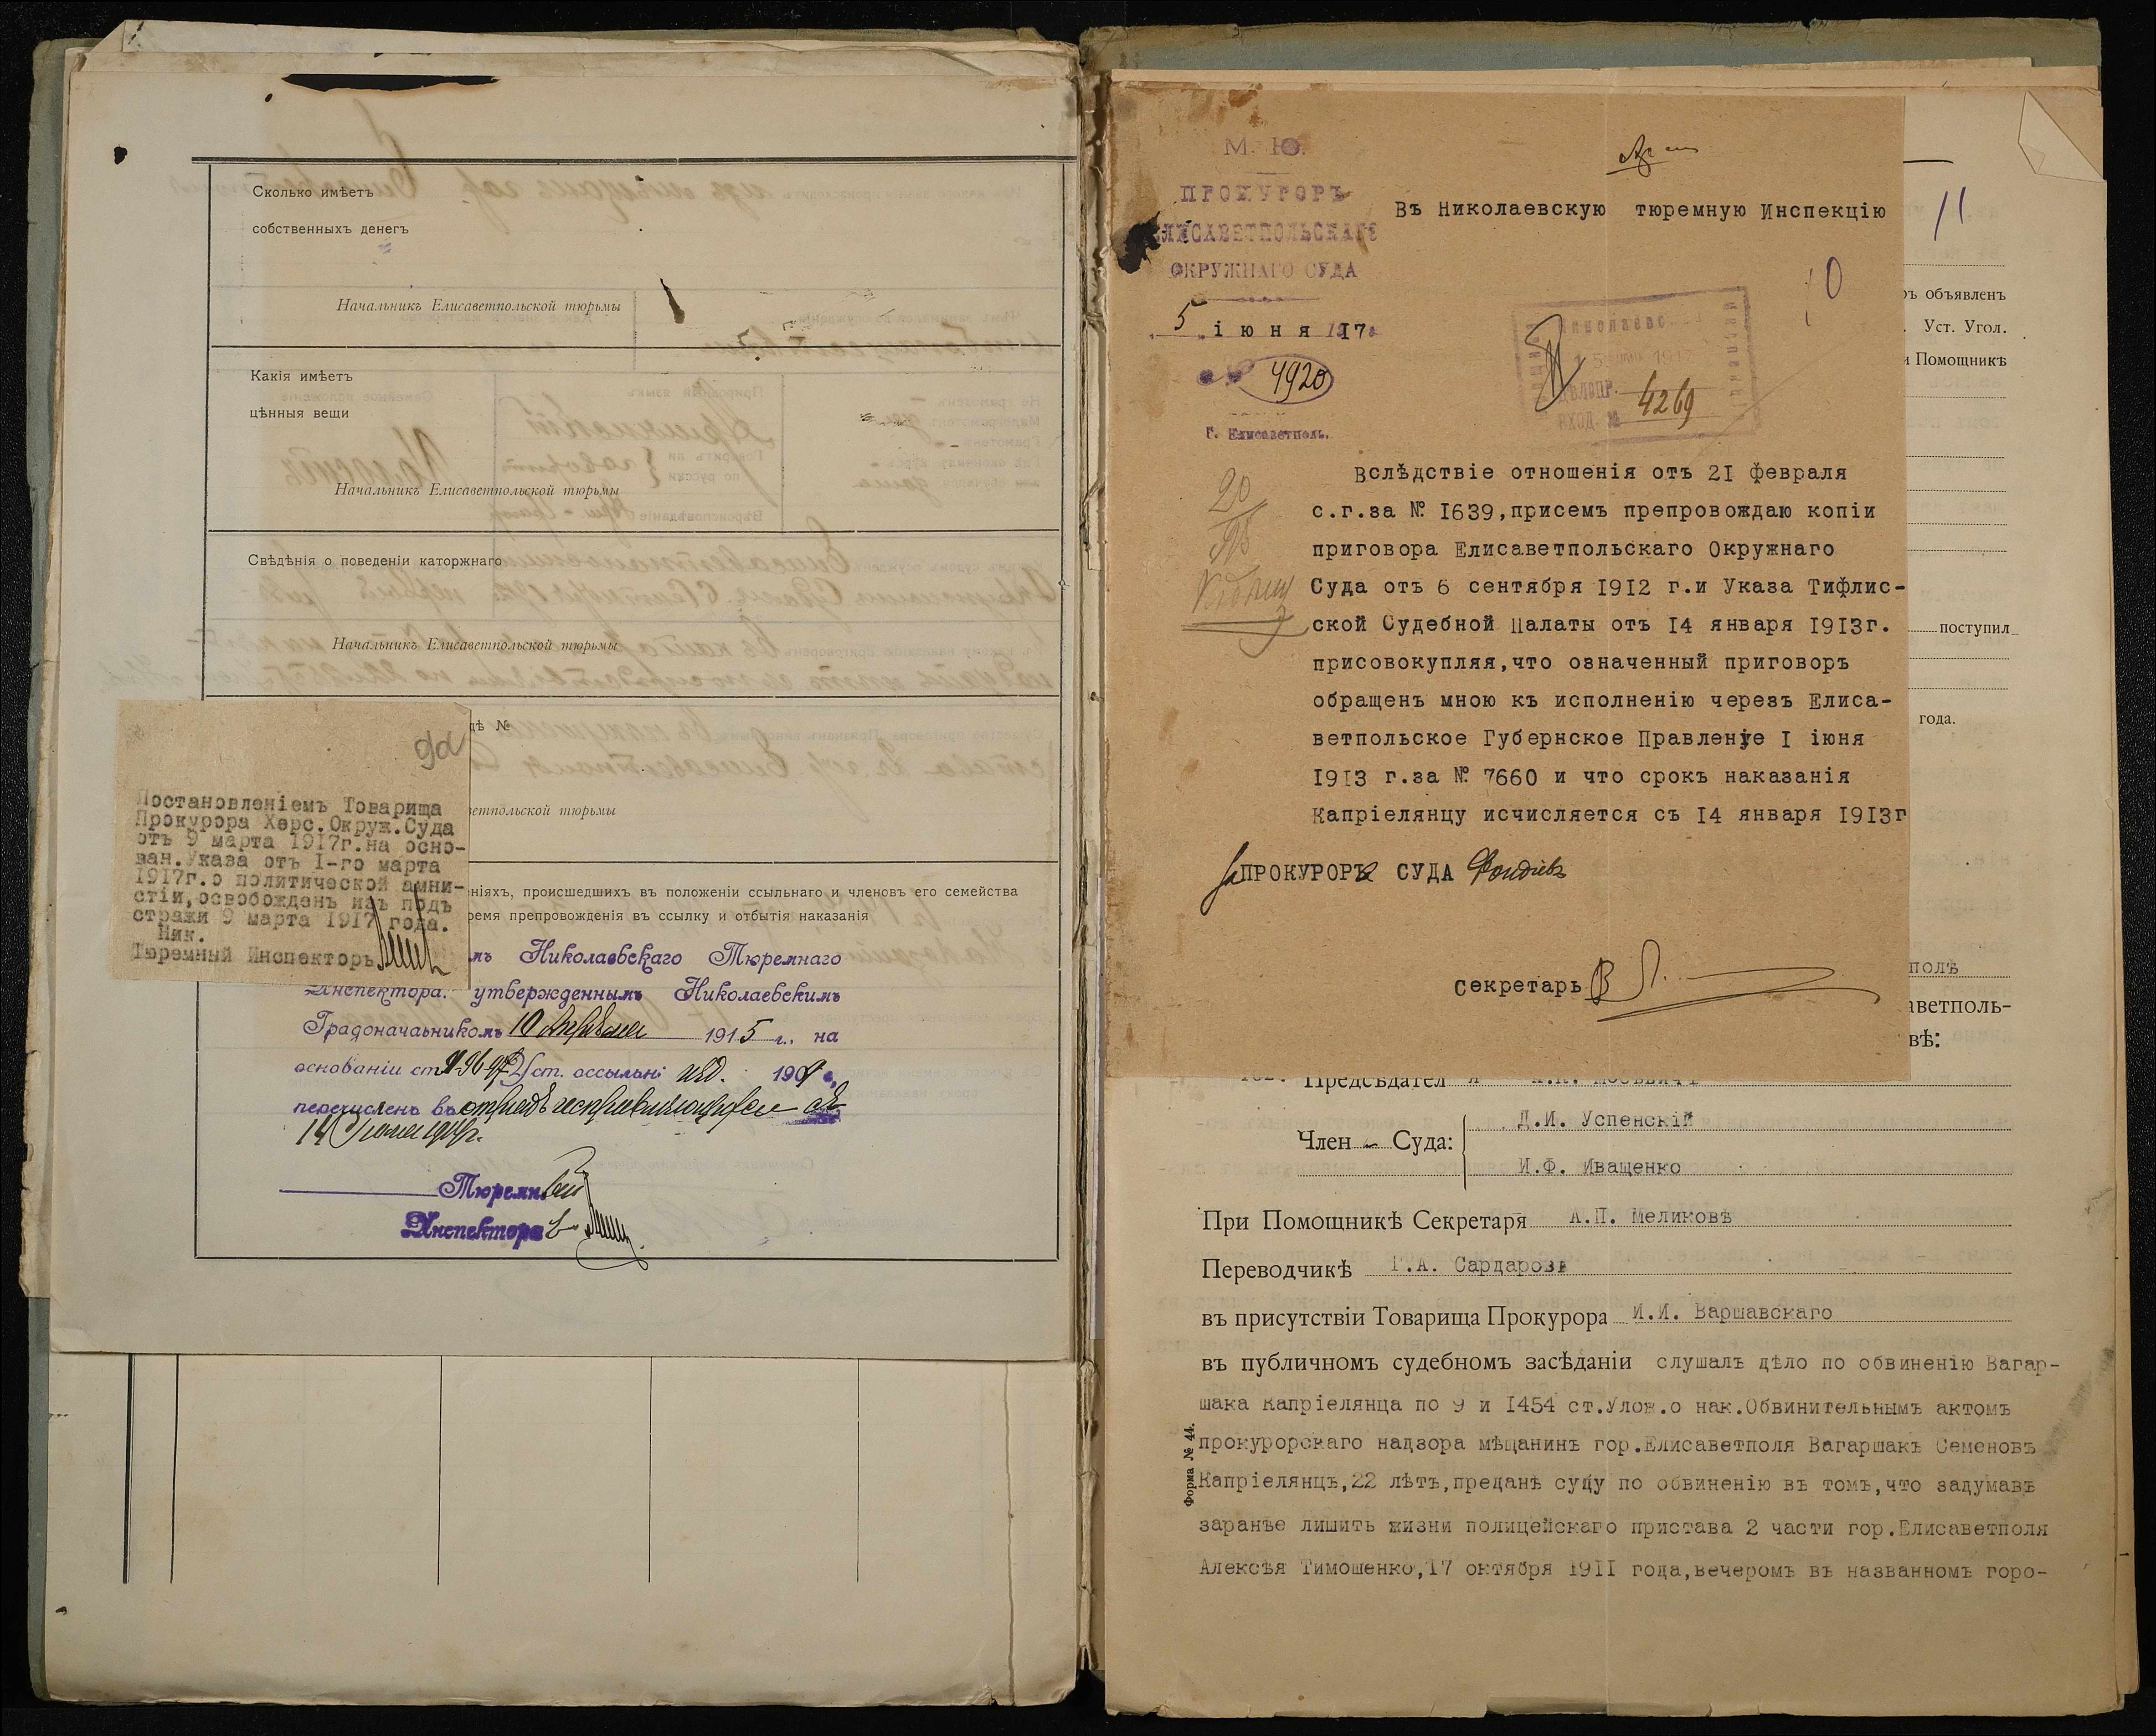 Сколько имѣетъ
собственныхъ денегъ
Начальникъ Елисаветпольской тюрьмы
Какія имѣетъ
цѣнныя вещи
Начальникъ Елисаветпольской тюрьмы
Свѣдѣнія о поведеніи каторжнаго
Начальникъ Елисаветпольской тюрьмы
дѣ №
ветпольской тюрьмы
да
Постановленіемъ Товарища
Прокурора Херс.Окруж.Суда
отъ 9 марта 1917г.на осно-
ван.Указа отъ I-го марта
1917г.о политической амни-
стіи,освобожденъ изъ подъ
стражи 9 марта 1917 года.
Ник.
Тюремный Инспекторъ
ніяхъ, происшедшихъ въ положеніи ссыльнаго и членовъ его семейства
ремя препровожденія въ ссылку и отбытія наказанія
мъ Николаевскаго Тюремнаго
Инспектора. утвержденнымъ Николаевскимъ
Градоначальникомъ 10 Апрѣля 1915 г., на
основаніи ст. уст. ос­сыльн: изд. 1909 г.
перечисленъ въ отрядъ исправляющихся съ
Тюремн
Инспекторъ
М. Ю.
ПРОКУРОРЪ
ЕЛИСАВЕТПОЛЬСКАГО
ОКРУЖНАГО СУДА
5 іюня 1917
№ 4920
Г. Елисаветполь.
Въ Николаевскую тюремную Инспекцію
11
ВХОД. № 4269
Вслѣдствіе отношенія отъ 2I февраля
с.г.за № I639,присемъ препровождаю копіи
приговора Елисаветпольскаго Окружнаго
Суда отъ 6 сентября I9I2 г.и Указа Тифлис-
ской Судебной Палаты отъ I4 января I9I3г.
присовокупляя,что означенный приговоръ
обращенъ мною къ исполненію черезъ Елиса-
ветпольское Губернское Правленіе I іюня
I9I3 г.за № 7660 и что срокъ наказанія
Капріелянцу исчисляется съ I4 января I9I3г
За ПРОКУРОРА СУДА
Секретарь
ръ объявленъ
. Уст. Угол.
и Помощникъ
поступил
года.
полѣ
аветполь-
вѣ:
Предсѣдател я
Член Суда:
Д.И. Успенскій
И.Ф. Иващенко
При Помощникѣ Секретаря А.П. Меликовѣ
Переводчикѣ Г.А. Сардаровѣ
въ присутствіи Товарища Прокурора И.И. Варшавскаго
въ публичномъ судебномъ засѣданіи слушалъ дѣло по обвиненію Вагар-
шака Капріелянца по 9 и I454 ст.Улож.о нак.Обвинительнымъ актомъ
прокурорскаго надзора мѣщанинъ гор.Елисаветполя Вагаршакъ Семеновъ
Капріелянцъ,22 лѣтъ,преданъ суду по обвиненію въ томъ,что задумавъ
заранѣе лишить жизни полицейскаго пристава 2 части гор.Елисаветполя
Алексѣя Тимошенко,I7 октября I9II года,вечеромъ въ названномъ горо-
Форма № 44.